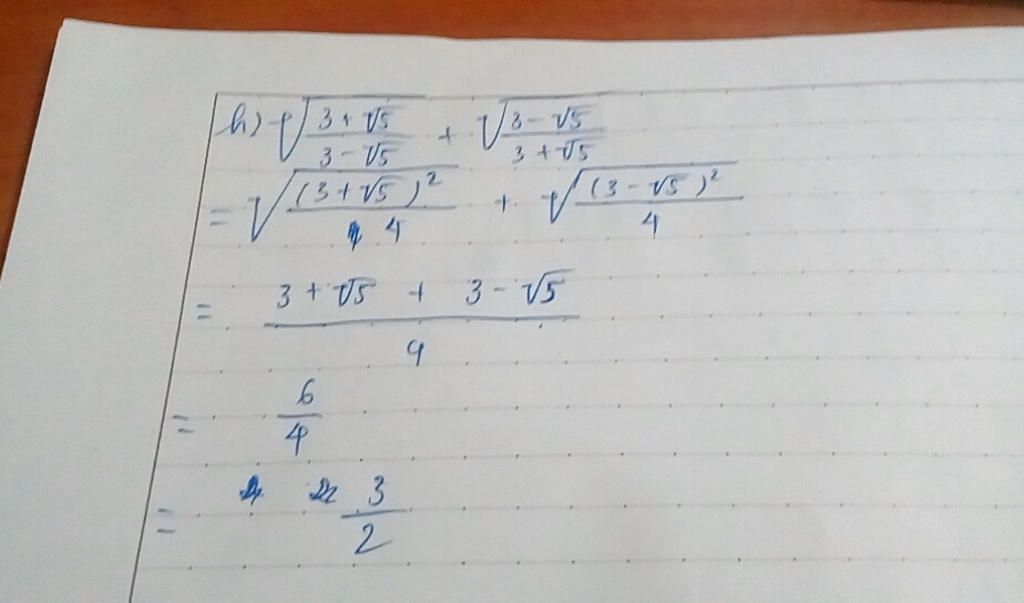 h) √((3+√5)/(3-√5)) + √((3-√5)/(3+√5))
= √((3+√5)²/4) + √((3-√5)²/4)
= (3+√5 + 3-√5)/4
= 6/4
= 3/2